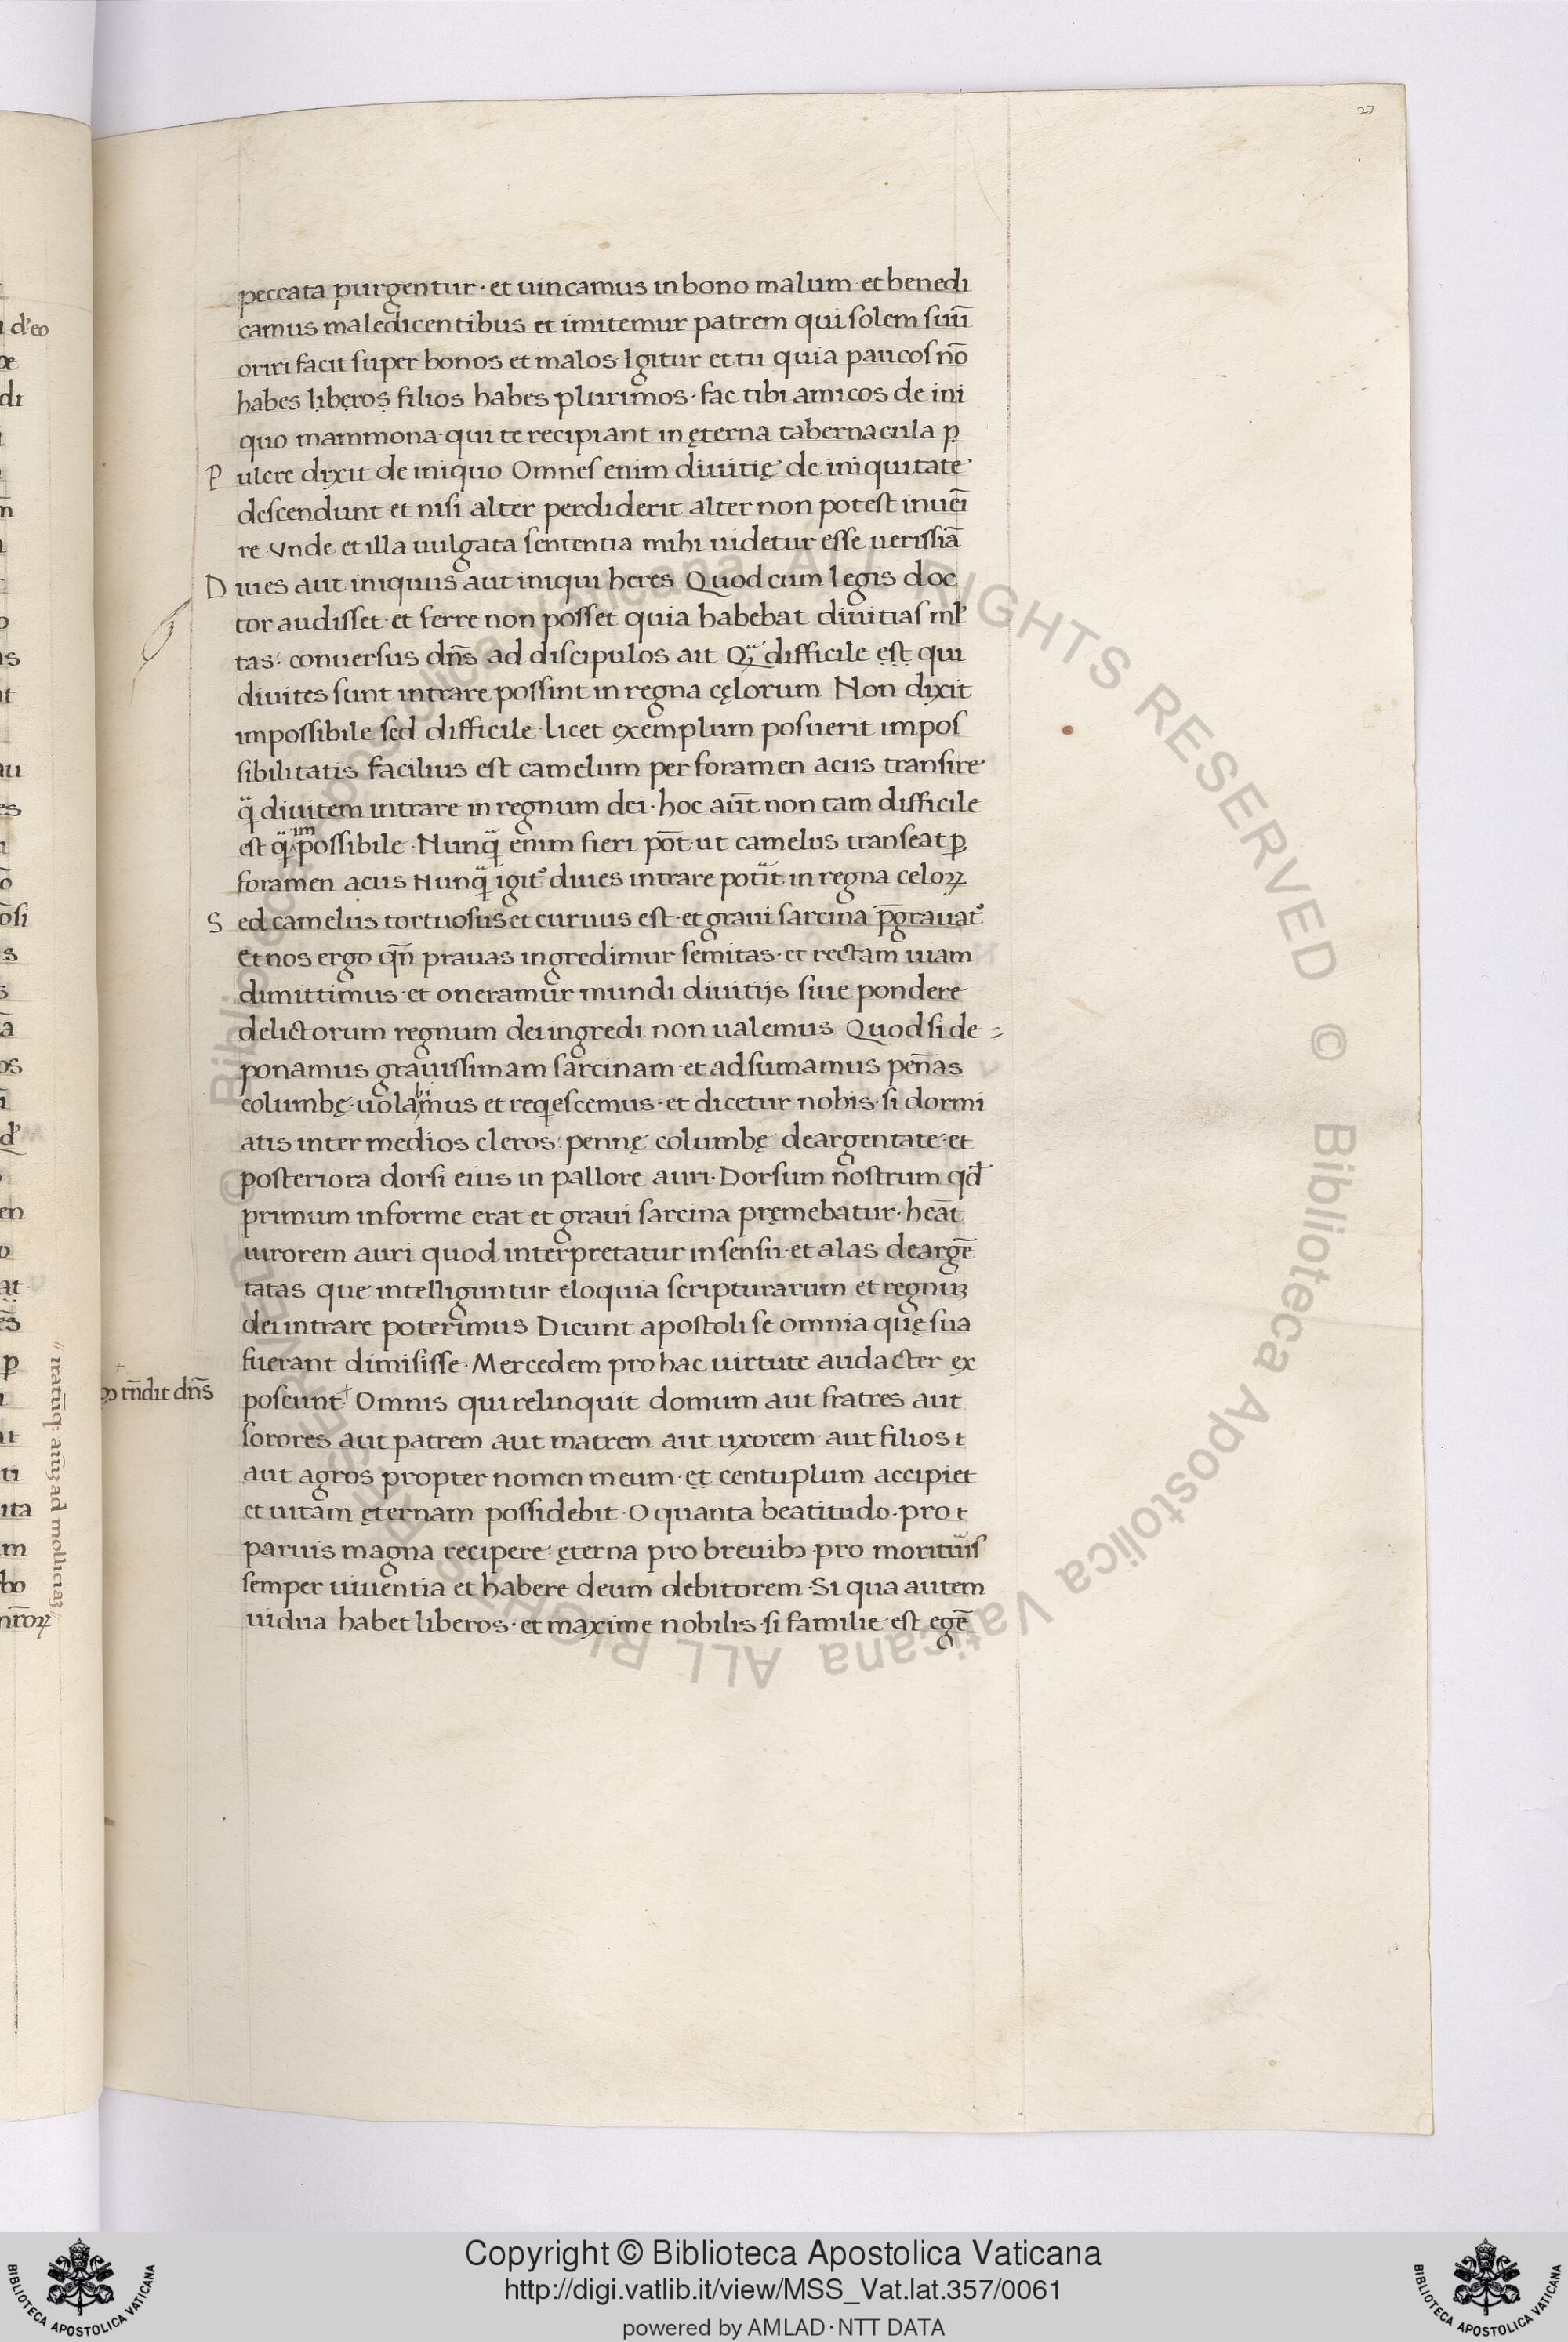 27
peccata purgentur · et uincamus in bono malum · et benedi
camus maledicentibus · et imitemur patrem qui solem suū
oriri facit super bonos et malos · Igitur et tu quia paucos nō
habes liberos filios habes plurimos · fac tibi amicos de ini
quo mammona · qui te recipiant in ęterna tabernacula p̱
Pulcre dixit de iniquo Omnes enim diuitię de iniquitate
descendunt et nisi alter perdiderit alter non potest inueī
re · Vnde et illa uulgata sententia mihi uidetur esse uerissiā
Diues aut iniquus aut iniqui heres Quod cum legis doc
tor audisset · et ferre non posset quia habebat diuitias ml̕
tas : conuersus dn̄s ad discipulos ait Qꝫ̈ difficile ẹṣṭ qui
diuites sunt intrare possint in regna cęlorum Non dixit
impossibile sed difficile · licet exemplum posuerit impos
sibilitatis facilius est camelum per foramen acus transire
q̈ diuitem intrare in regnum dei · hoc aūt non tam difficile
est q̈ impossibile · Nunq̈ enim fieri pōt · ut camelus transeat ꝑ
foramen acus Nunq̈ igit᷑ diues intrare potüt in regna celoꝝ
Sed camelus tortuosus et curuus est · et graui sarcina p̄grauat᷑
Et nos ergo qn̄ prauas ingredimur semitas · et rectam uiam
dimittimus · et oneramur mundi diuitijs siue pondere
delictorum regnum dei ingredi non ualemus Quod si de =
ponamus grauissimam sarcinam · et adsumamus pen̄as
columbę · uolabimus et reqescemus · et dicetur nobis · si dormi
atis inter medios cleros : pennę columbę deargentate · et
posteriora dorsi eius in pallore auri · Dorsum nostrum qđ
primum informe erat et graui sarcina pręmebatur · heāt
uirorem auri quod interpretatur in sensu · et alas deargē
tatas que intelliguntur eloquia scripturarum et regnuꝫ
dei intrare poterimus Dicunt apostoli se omnia quę sua
fuerant dimisisse · Mercedem pro hac uirtute audacter ex
rn̄dit dn̄s
poscunt † Omnis qui relinquit domum aut fratres aut
sorores aut patrem aut matrem aut uxorem aut filios
aut agros propter nomen meum · ẹṭ centuplum accipiet
et uitam ęternam possidebit · O quanta beatitudo · pro
paruis magna recipere ęterna pro breuibꝫ · pro moritüis
semper uiuentia et habere deum debitorem · Si qua autem
uidua habet liberos · et maxime nobilis · si familie est egē
Copyright © Biblioteca Apostolica Vaticana
http://digi.vatlib.it/view/MSS_Vat.lat.357/0061
powered by AMLAD · NTT DATA